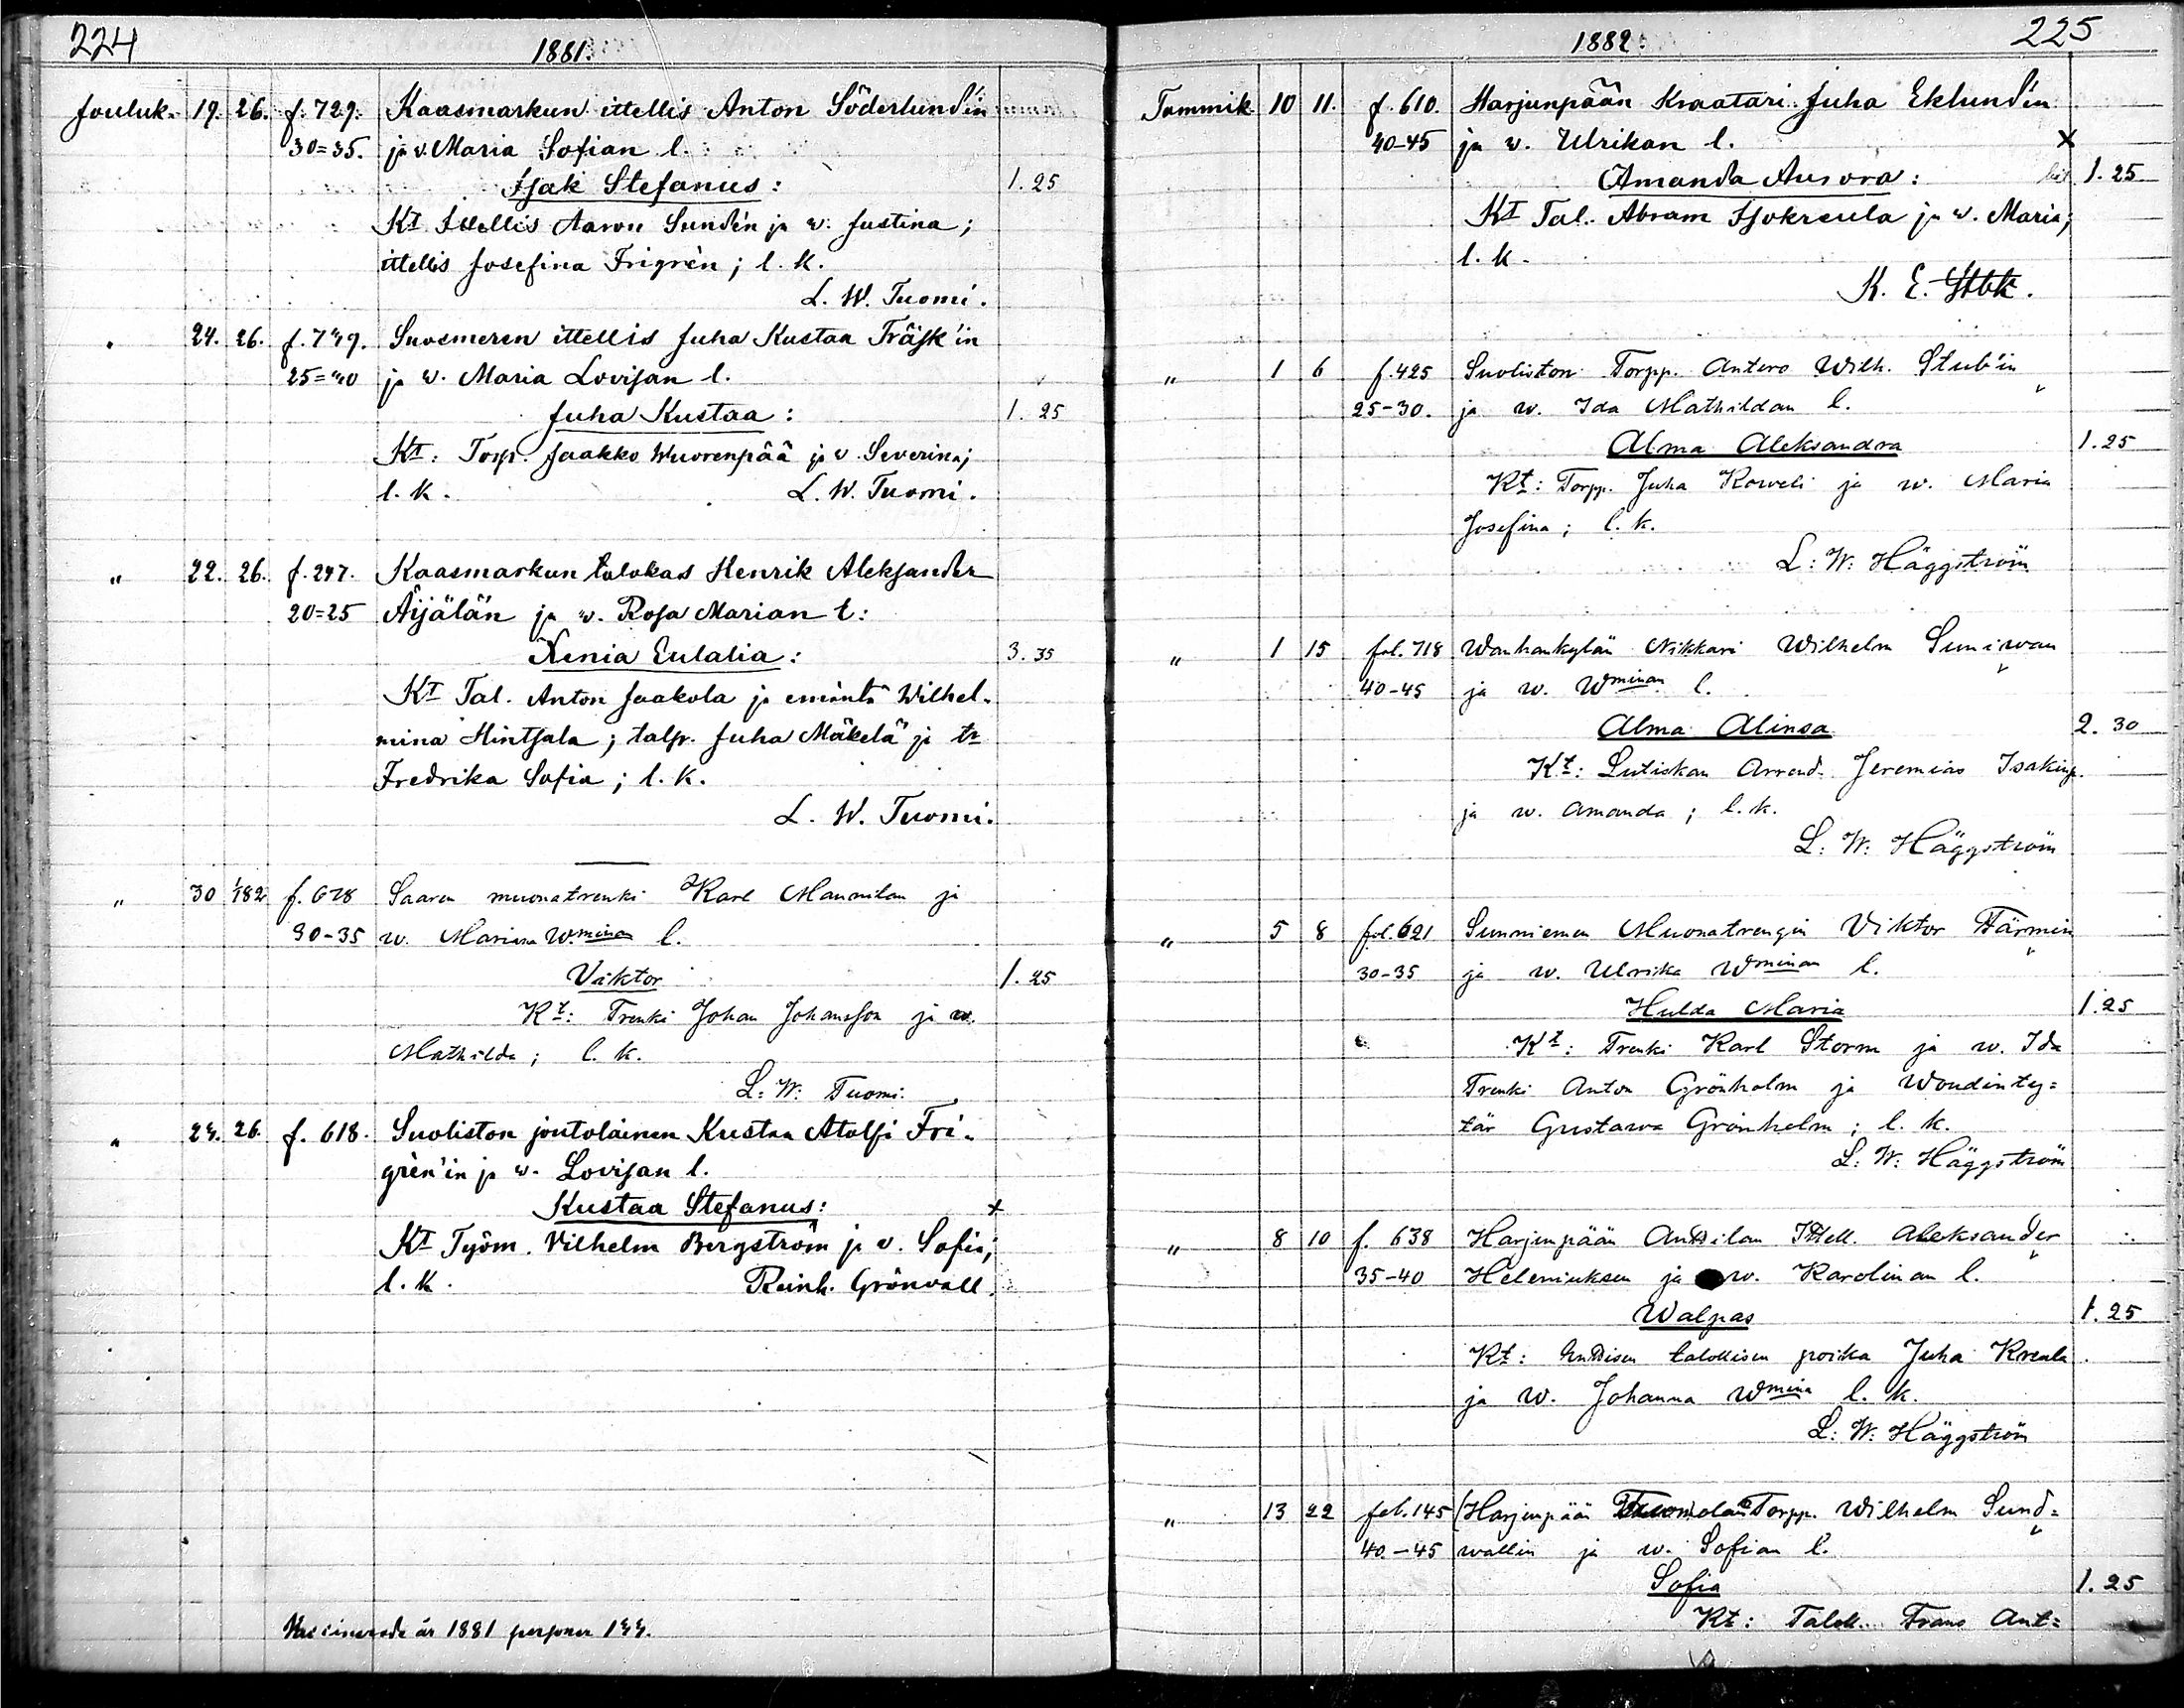 224
1881.
Jouluk. 19. 26. f. 729. Kaasmarkun ittellis Anton Söderlund'in
30=35. ja v. Maria Sofian l.
Isak Stefanus: 1. 25
Kt Ittellis Aaron Sundén ja w. Justina;
ittellis Josefina Frigrèn; l. k.
L. W. Tuomi.
" 24. 26. f. 749. Suosmeren ittellis Juha Kustaa Träsk'in
25=40 ja w. Maria Lovisan l.
Juha Kustaa: 1. 25
Kt: Torp. Jaakko Wuorenpää ja v. Severina;
l. k. L. W. Tuomi.
" 22. 26. f. 247. Kaasmarkun talokas Henrik Aleksander
20=25 Äijälän ja w. Rosa Marian t:
Xenia Eulalia: 3. 35
Kt Tal. Anton Jaakola ja emäntä Wilhel-
mina Hintsala; talp. Juha Mäkelä ja tr
Fredrika Sofia; l. k.
L. W. Tuomi.
" 30 1/182 f. 678 Saaren muonatrenki Karl Mannilan ja
30-35 w. Mariana Wminan l.
Viktor 1. 25
Kt: Trenki Johan Johansson ja w.
Mathilda; l. k.
L: W: Tuomi.
" 24. 26. f. 618. Suoliston joutolainen Kustaa Atolfi Fri-
grèn'in ja w. Lovisan l.
Kustaa Stefanus: x
Kt Työm. Vilhelm Bergström ja v. Sofia;
l. k. Reinh. Grönvall.
Vaccinerade år 1881 personer 144.
225
1882.
Tammik 10 11. f. 610. Harjunpään Kraatari Juha Eklund'in
40-45 ja w. Ulrikan l. x
Amanda Aurora: 1. 25
Kt Tal. Abram Isokreula ja w. Maria;
l. k.
K. E.
" 1 6 f. 425 Suoliston Torpp. Antero Wilh. Stub'in
25-30. ja w. Ida Mathildan l. "
Alma Aleksandra 1. 25
Kt: Torpp. Juha Koweli ja w. Maria
Josefina; l. k.
L: W: Häggström
" 1 15 fol. 718 Wanhankylän Nikkari Wilhelm Suniwan
40-45 ja w. Wminan l. "
Alma Alinsa 2. 30
Kt: Lutiskan Arrend. Jeremias Isakinp.
ja w. Amanda; l. k.
L: W: Häggström
" 5 8 fol. 621 Sunniemen Muonatrengin Viktor Färmin
30-35 ja w. Ulrika Wminan l. "
Hulda Maria 1. 25
Kt: Trenki Karl Storm ja w. Ida
Trenki Anton Grönholm ja Woudinty=
tär Gustawa Grönholm; l. k.
L: W: Häggström
" 8 10 f. 638 Harjunpään Anttilan Ittell. Aleksander
35-40 Heleniuksen ja w. Karolinan l. "
Walpas 1. 25
Kt: Entisen talollisen poika Juha Kreula
ja w. Johanna Wmina l. k.
L: W: Häggström
" 13 22 fol. 145 Harjunpään Torpp. Wilhelm Sund=
40-45 wallin ja w. Sofian l. "
Sofia 1. 25
Kt: Taloll. Frans Ant=